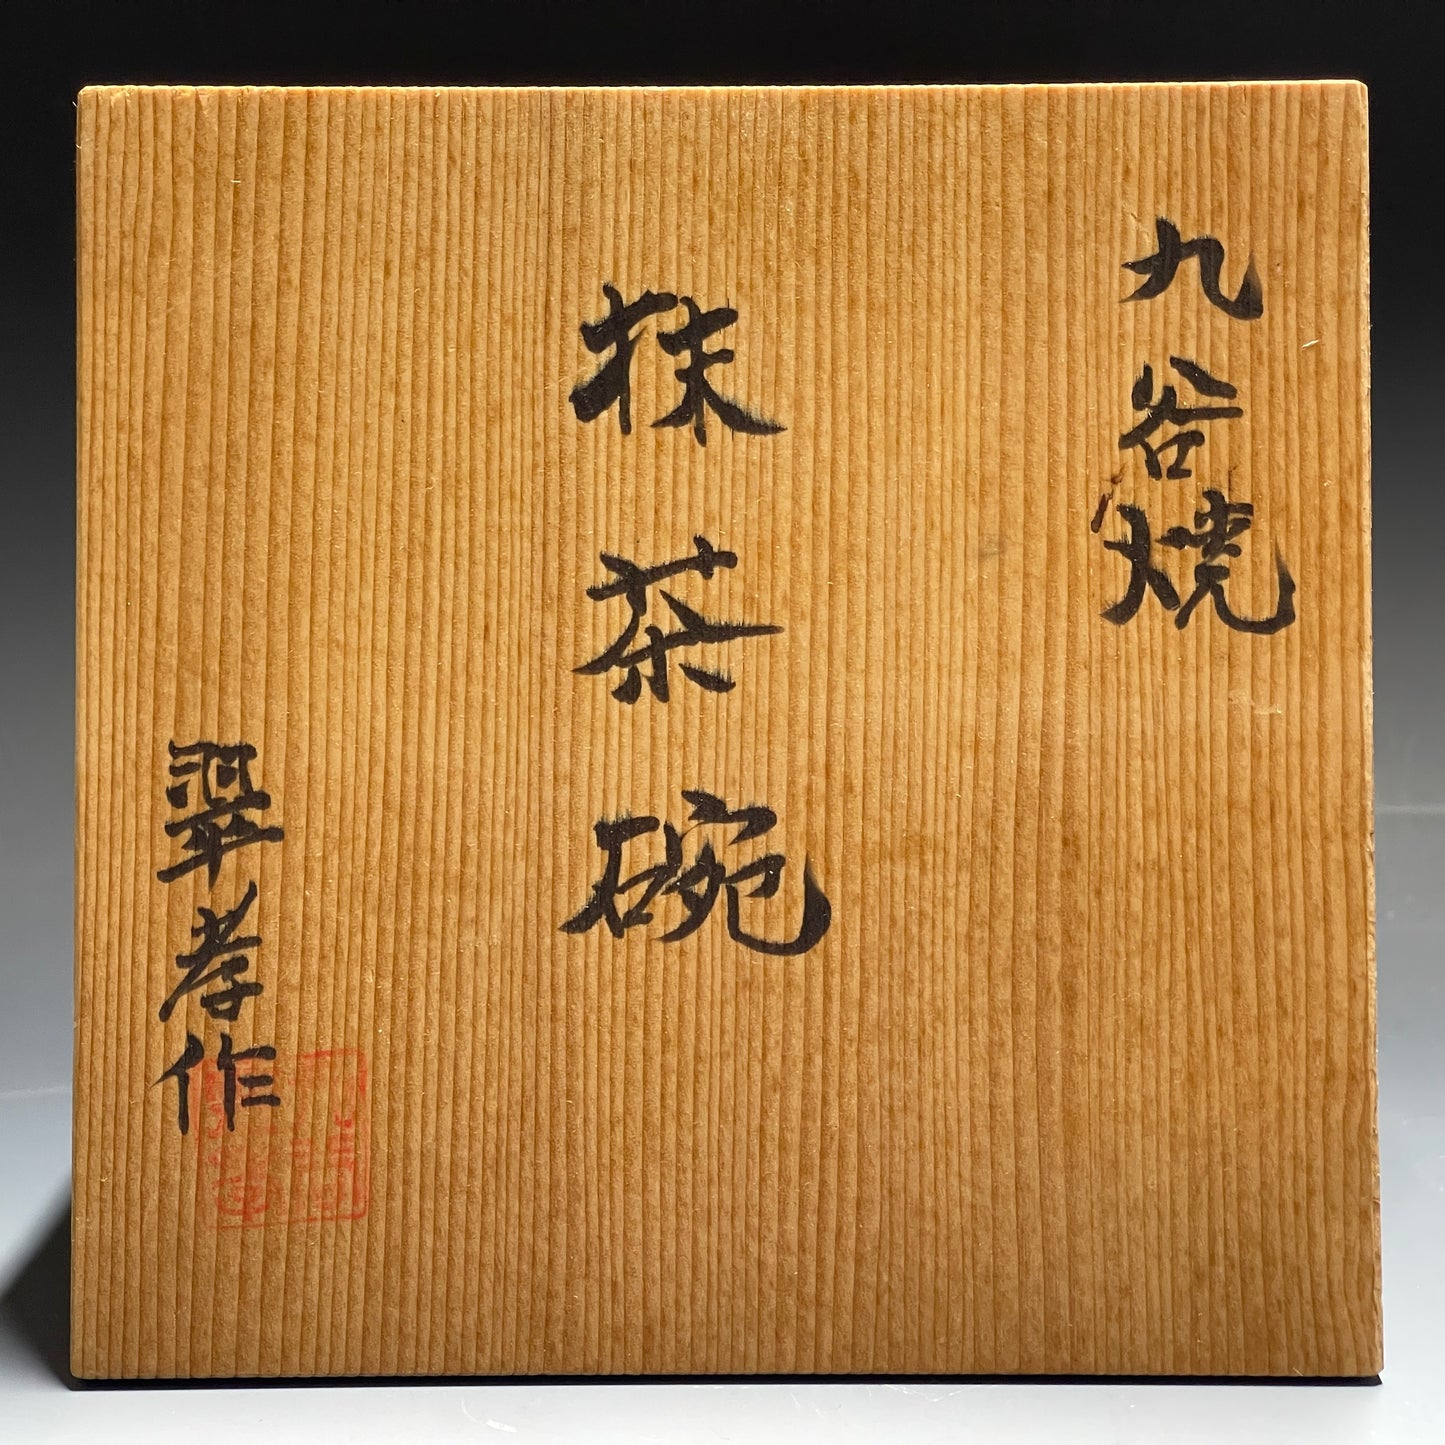 九谷焼
抹茶碗
翠孝作